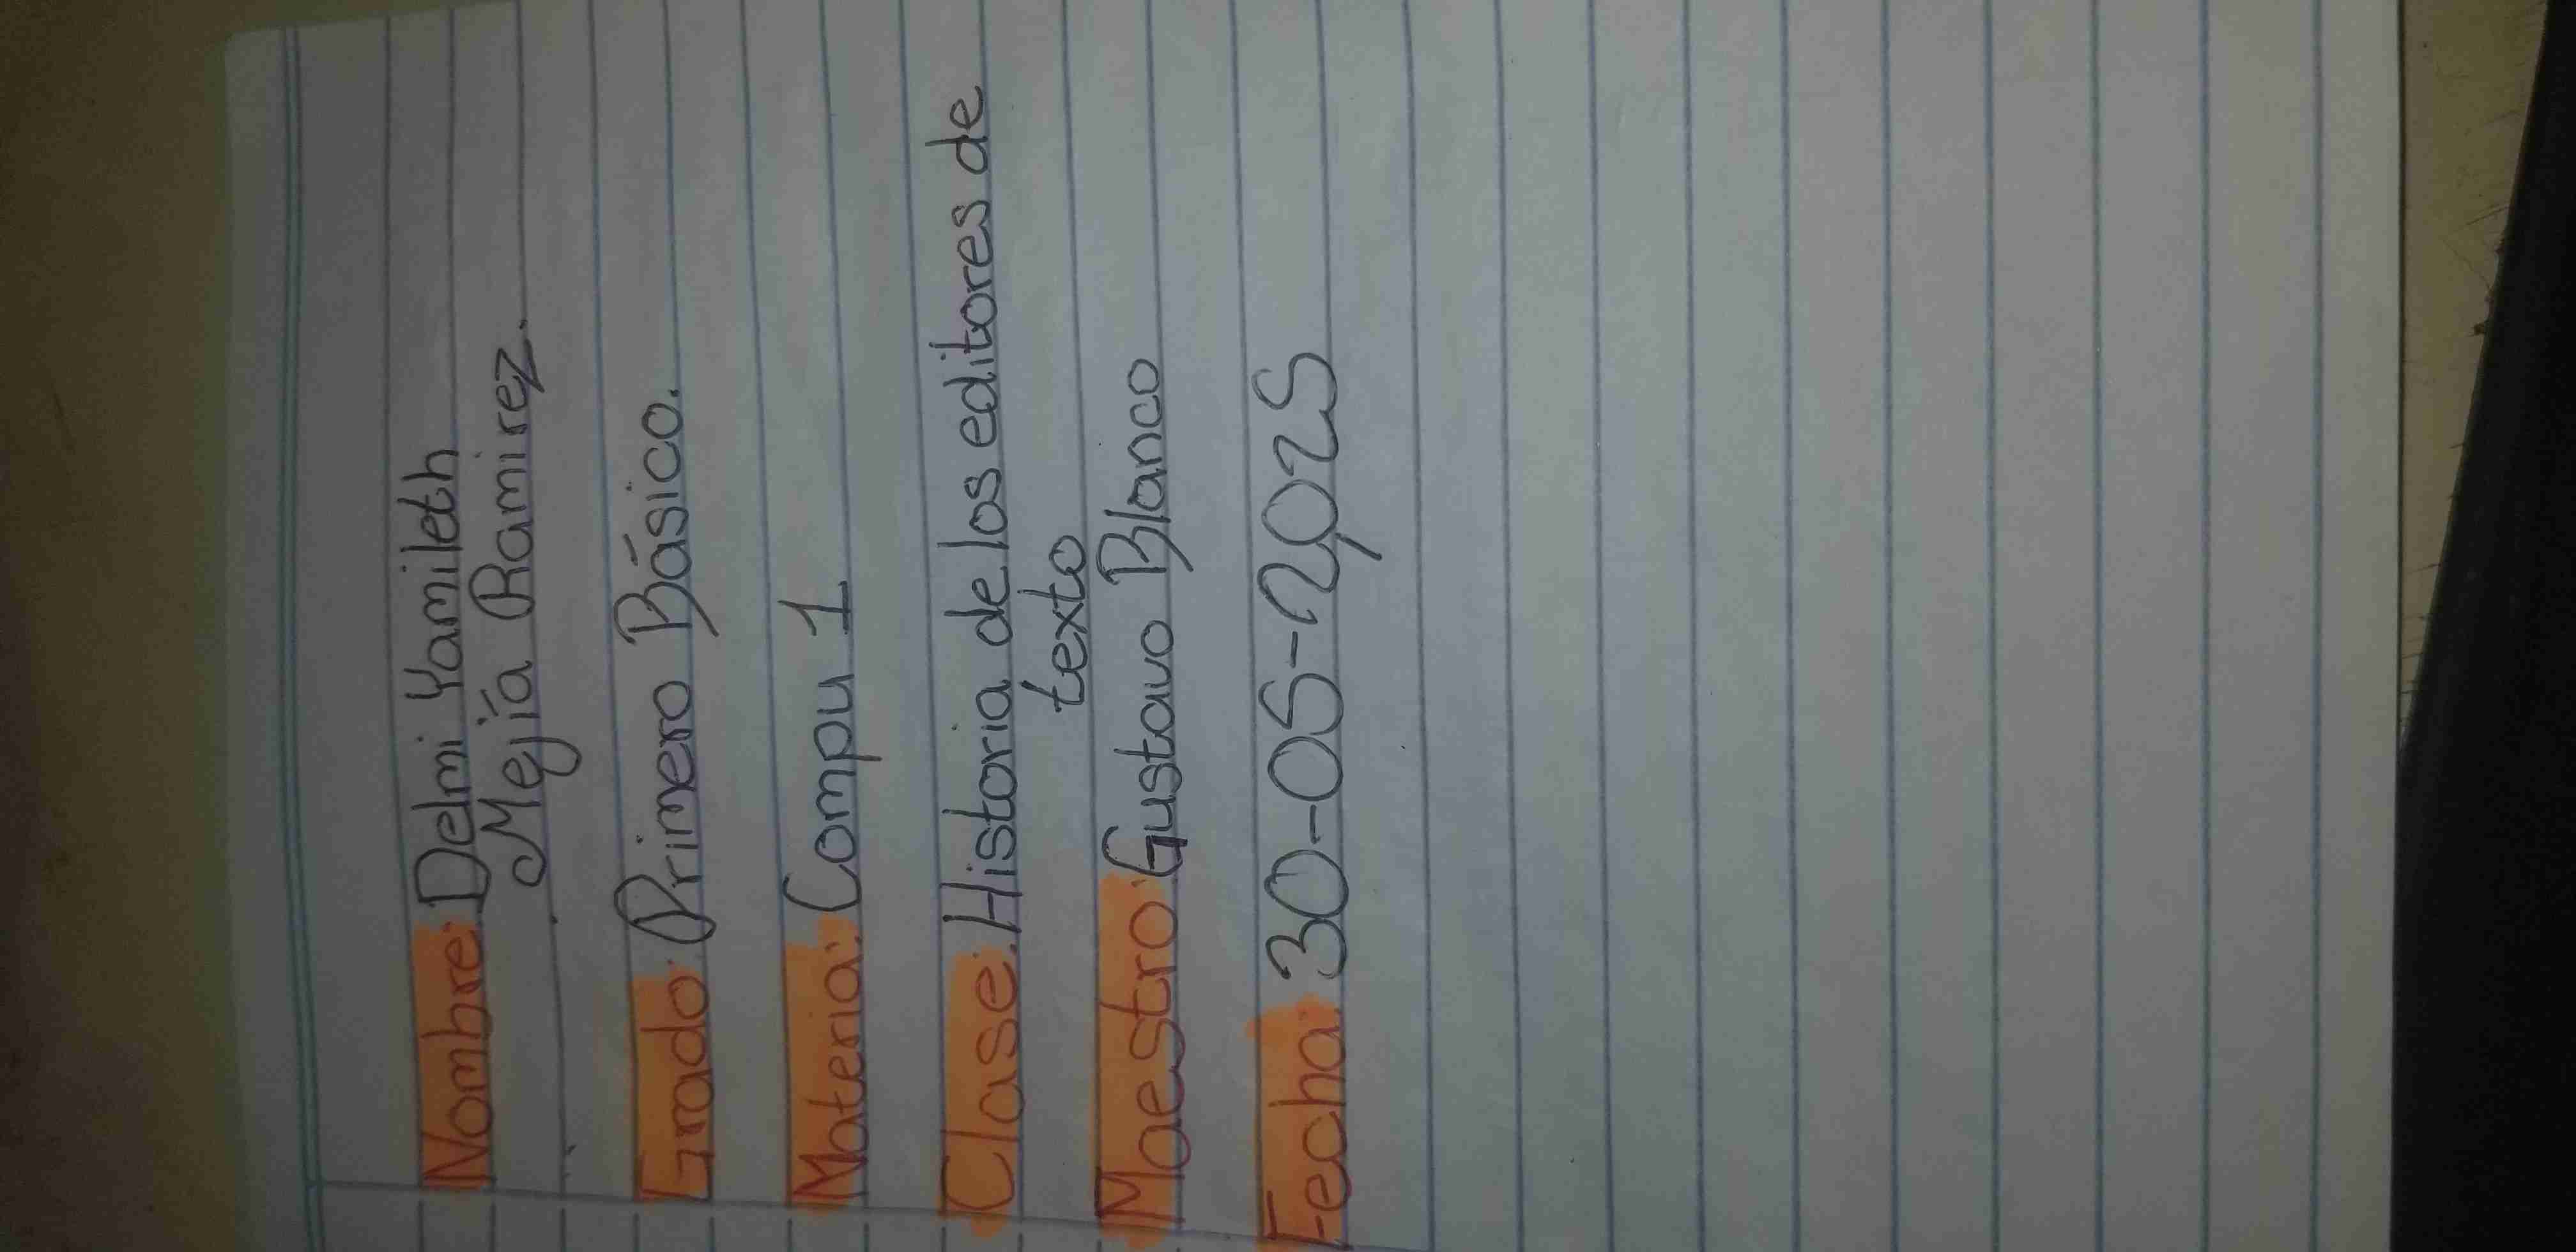 Nombre: Delmi Yamileth
Mejía Ramirez.
Grado: Primero Básico.
Materia: Compu 1
Clase: Historia de los editores de
texto
Maestro: Gustavo Blanco
Fecha: 30-05-2025